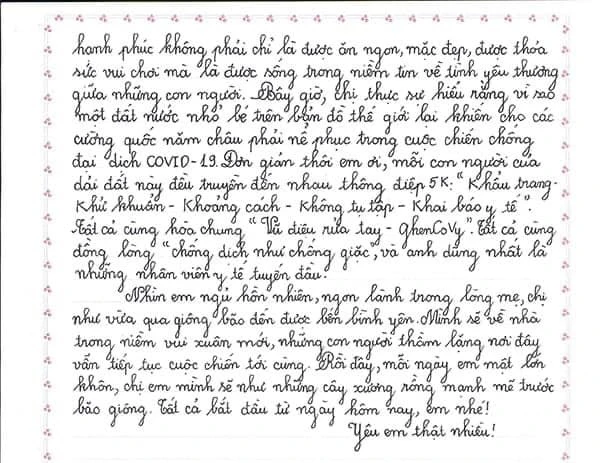 hạnh phúc không phải chỉ là được ăn ngon, mặc đẹp, được thỏa
sức vui chơi mà là được sống trong niềm tin về tình yêu thương
giữa những con người. Bây giờ, chị thực sự hiểu rằng vì sao
một đất nước nhỏ bé trên bản đồ thế giới lại khiến cho các
cường quốc năm châu phải nể phục trong cuộc chiến chống
đại dịch COVID-19. Đơn giản thôi em ơi, mỗi con người của
dải đất này đều truyền đến nhau thông điệp 5K: "Khẩu trang-
Khử khuẩn - Khoảng cách - Không tụ tập - Khai báo y tế".
Tất cả cùng hòa chung "Vũ điệu rửa tay - GhenCôVy". Tất cả cùng
đồng lòng "chống dịch như chống giặc", và anh dũng nhất là
những nhân viên y tế tuyến đầu!
Nhìn em ngủ hồn nhiên, ngon lành trong lòng mẹ, chị
như vừa qua giông bão đến được bến bình yên. Mình sẽ về nhà
trong niềm vui xuân mới, những con người thầm lặng nơi đây
vẫn tiếp tục cuộc chiến tới cùng. Rồi đây, mỗi ngày em một lớn
khôn, chị em mình sẽ như những cây xương rồng mạnh mẽ trước
bão giông. Tất cả bắt đầu từ ngày hôm nay, em nhé!
Yêu em thật nhiều!